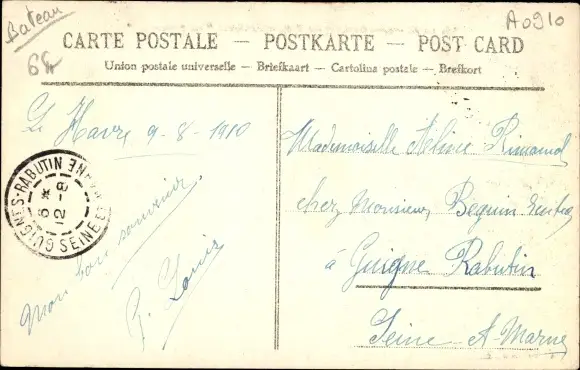 Bateau
A0910
CARTE POSTALE — POSTKARTE — POST CARD
Union postale universelle — Briefkaart — Cartolina postale — Brefkort
Le Havre 9-8-1910
Mon bon souvenir
P. Louis
GUIGNES-RABUTIN SEINE ET MARNE
12 -8
Mademoiselle Aline
chez Monsieur Beguin
à Guigne Rabutin
Seine-et-Marne